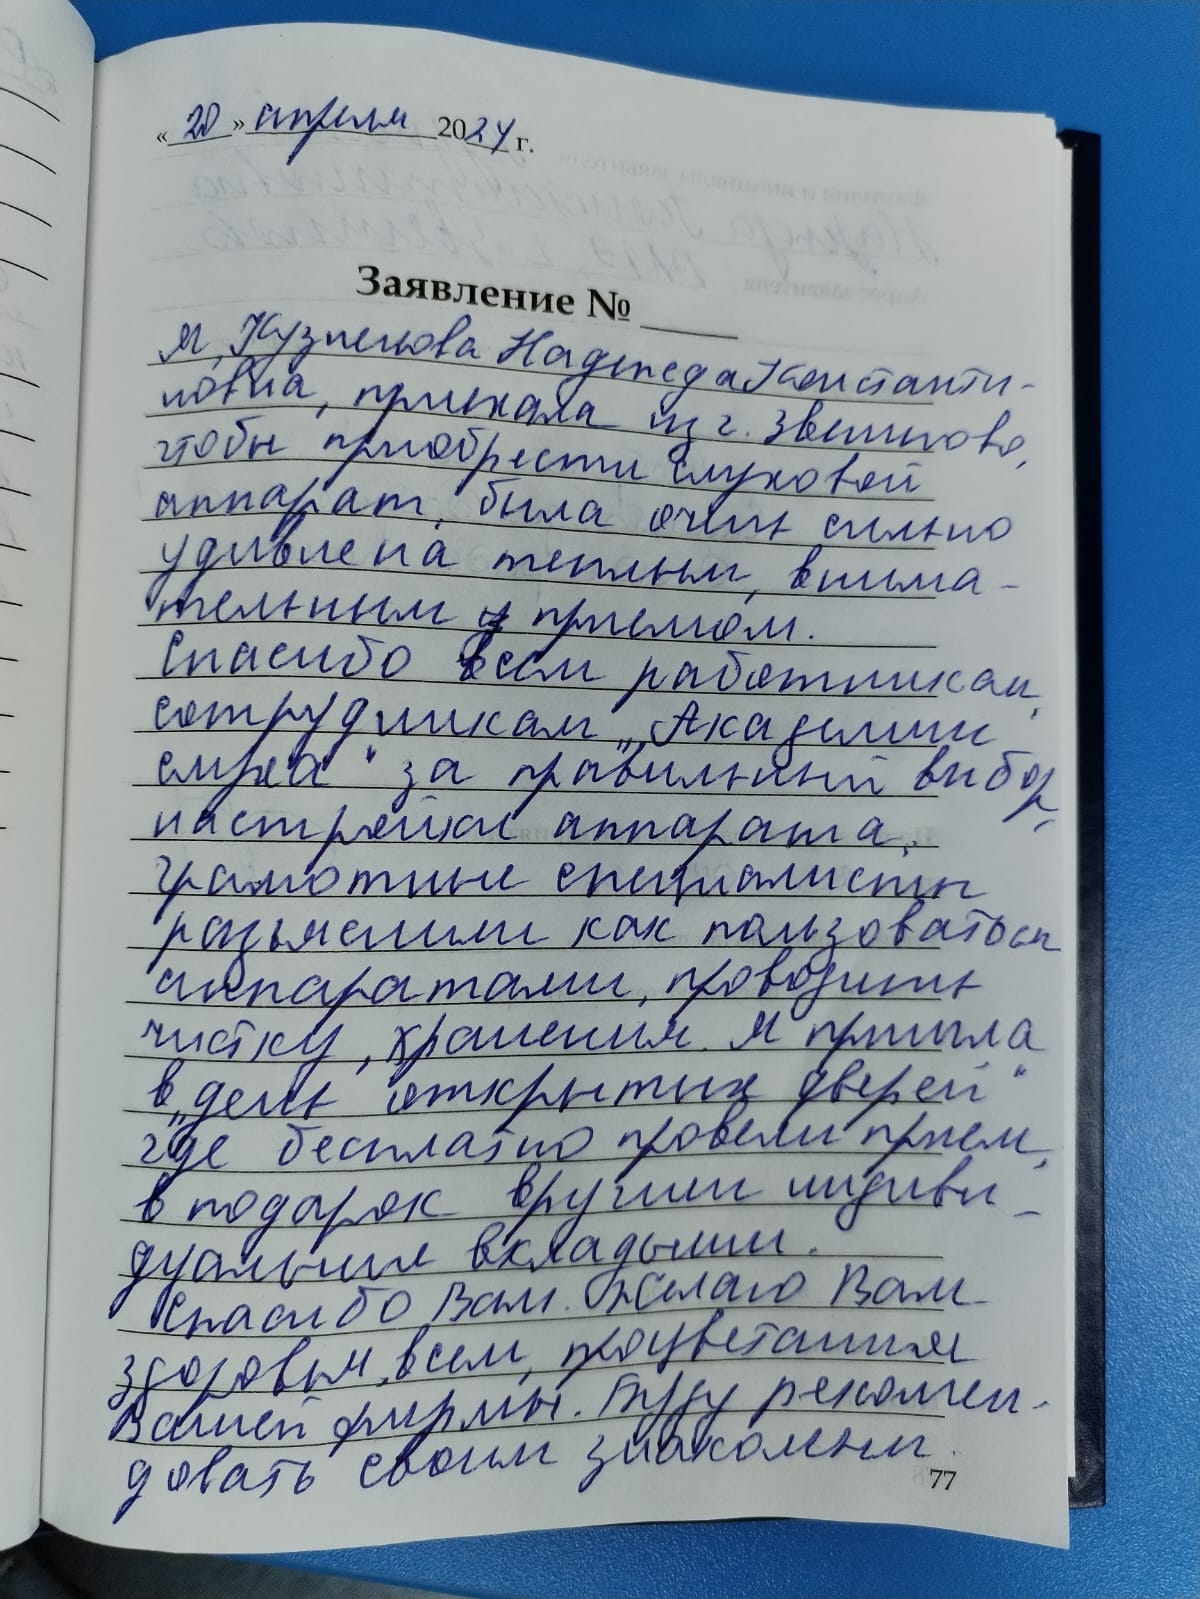 «20» апреля 2024 г.
Заявление № ____
Я, Кузнецова Надежда Константи-
новна, приехала из г. Звенигово,
чтобы приобрести слуховой
аппарат, была очень сильно
удивлена теплым, внима-
тельным приемом.
Спасибо всем работникам,
сотрудникам „Академии
слуха" за правильный выбор,
настройки аппарата,
грамотные специалисты
разъяснили как пользоваться
аппаратами, проводить
чистку, хранения. Я пришла
в „день открытых дверей"
где бесплатно провели прием,
в подарок вручили индиви-
дуальные вкладыши.
Спасибо Вам. Желаю Вам
здоровья, всем, процветания
Вашей фирмы. Буду рекомен-
довать своим знакомым.
77